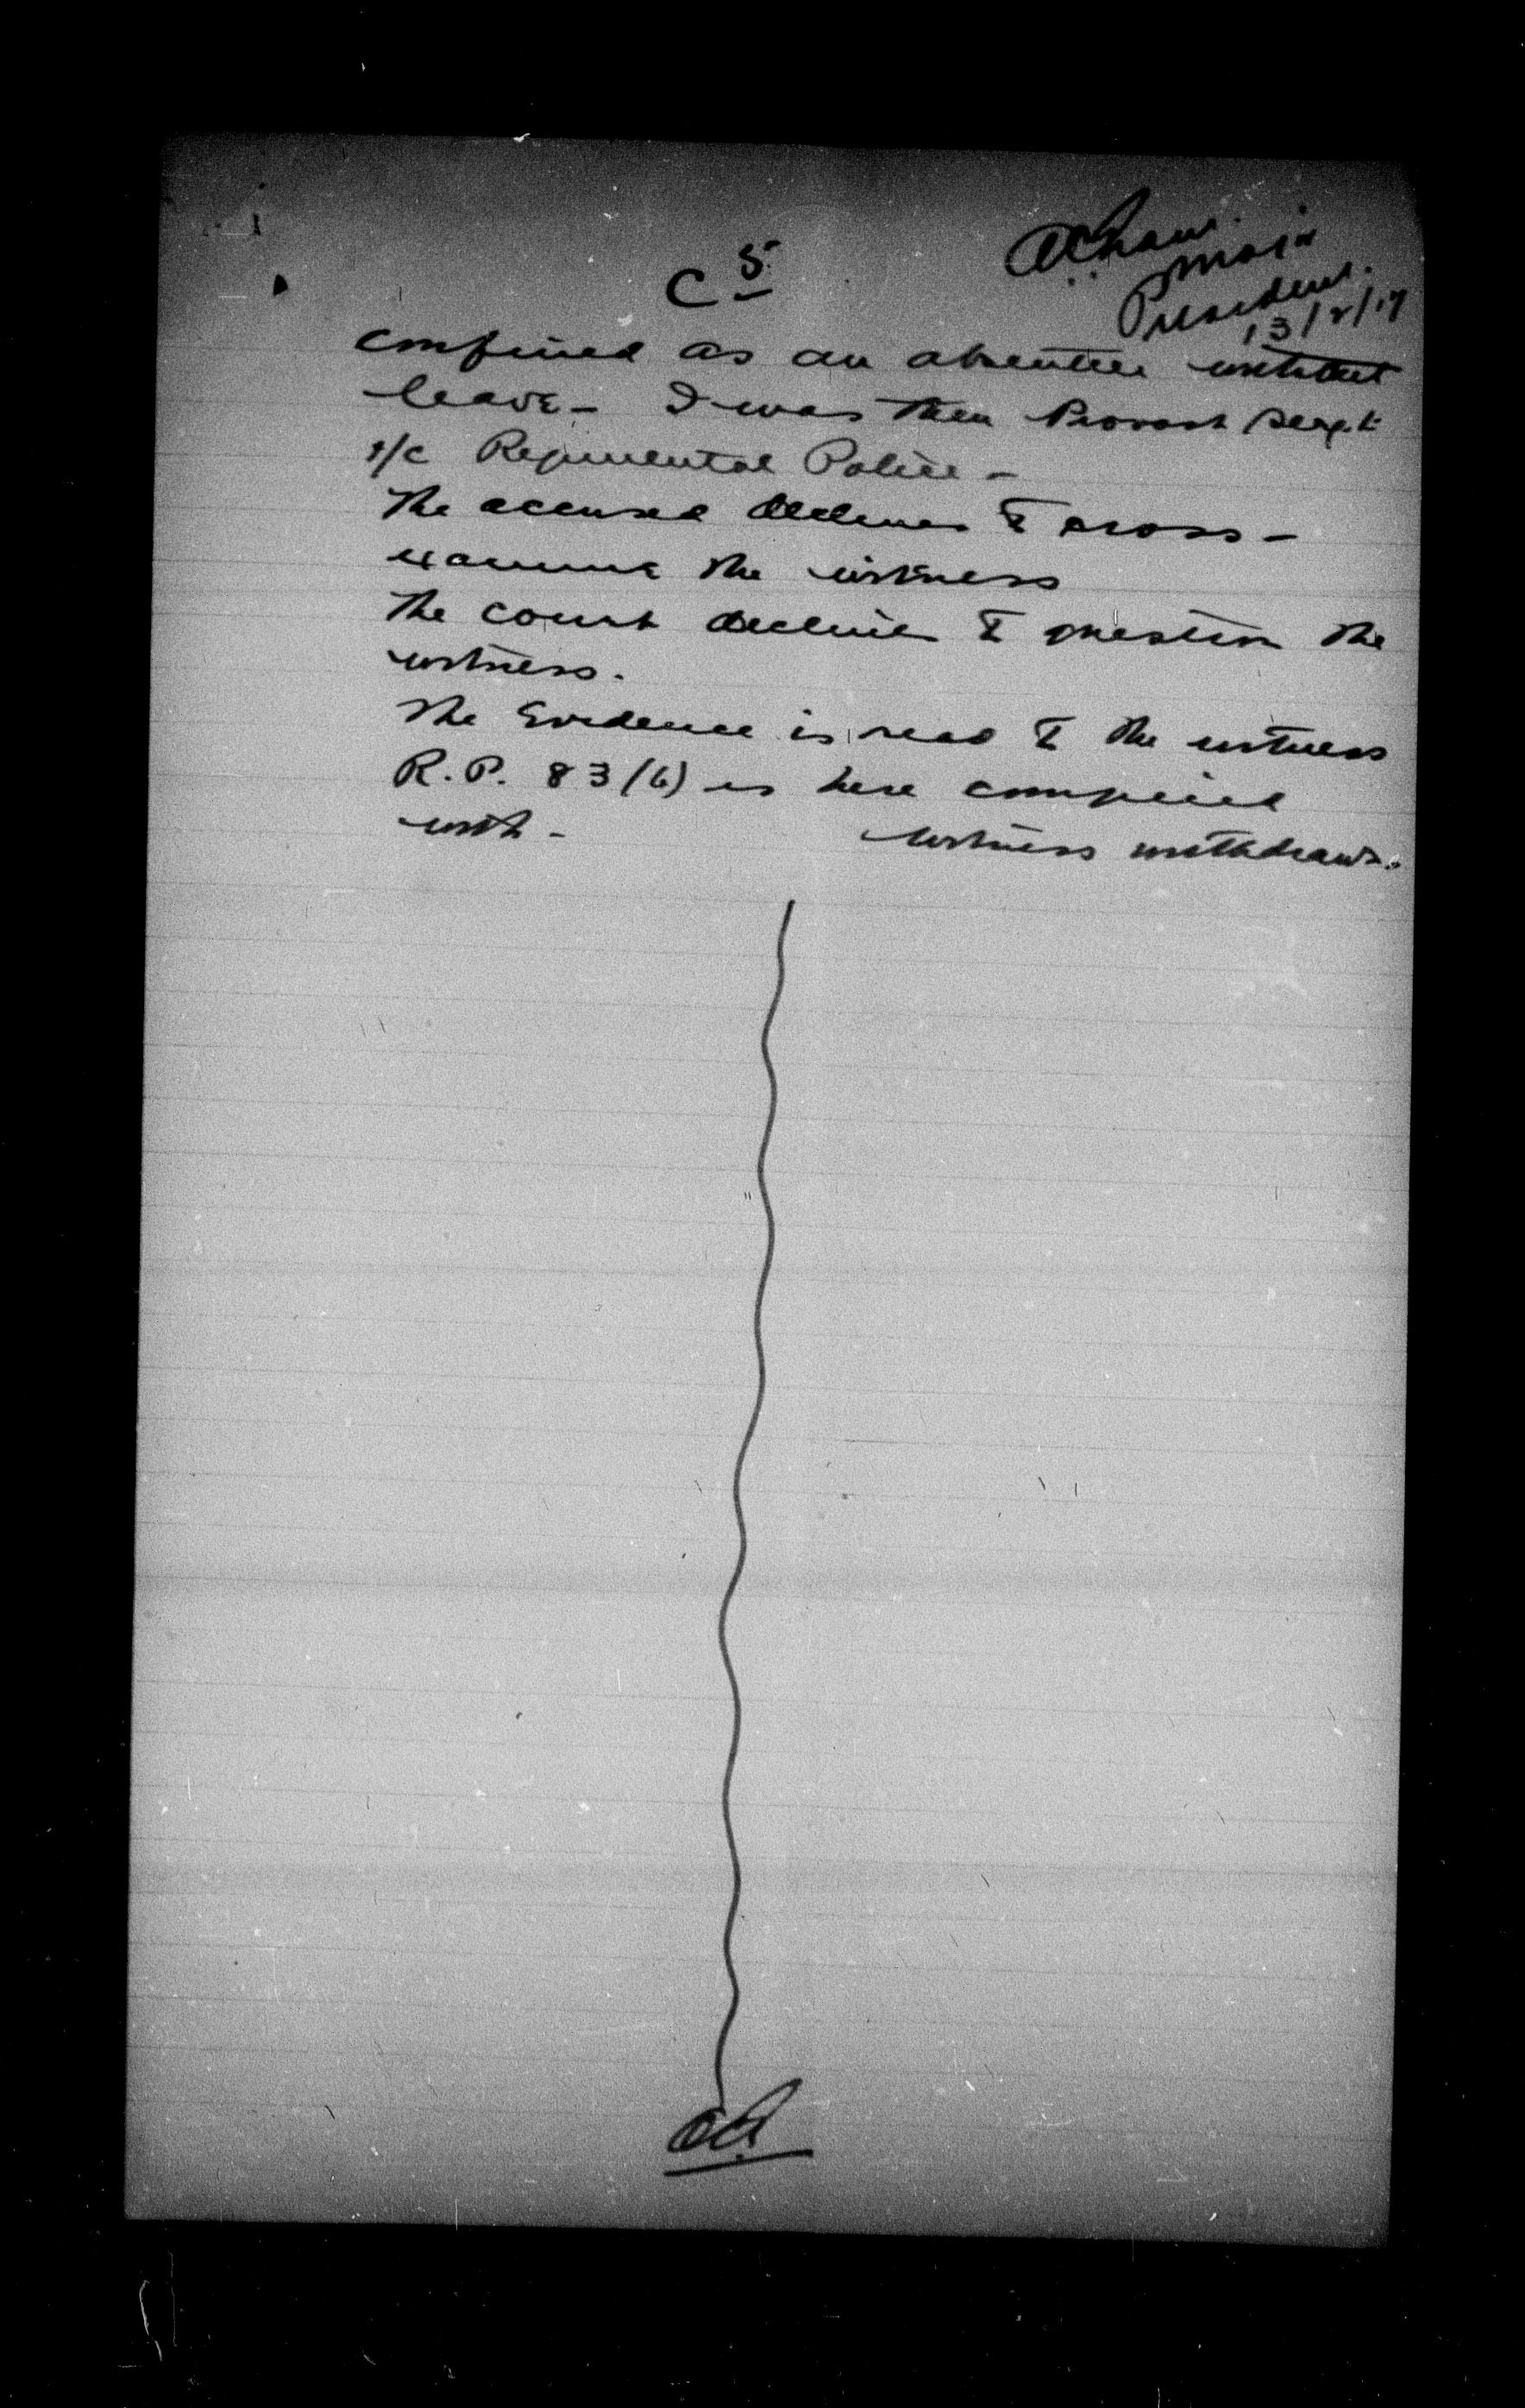 C 5
Major
President.
13/2/17
confined as an absentee without
leave - I was then Provost Sergt
i/c Regimental Police -
The accused declines to cross -
examine the witness
The court declines to question the
witness.
The Evidence is read to the witness
R.P. 83 (b) is here complied
with - witness withdraws.